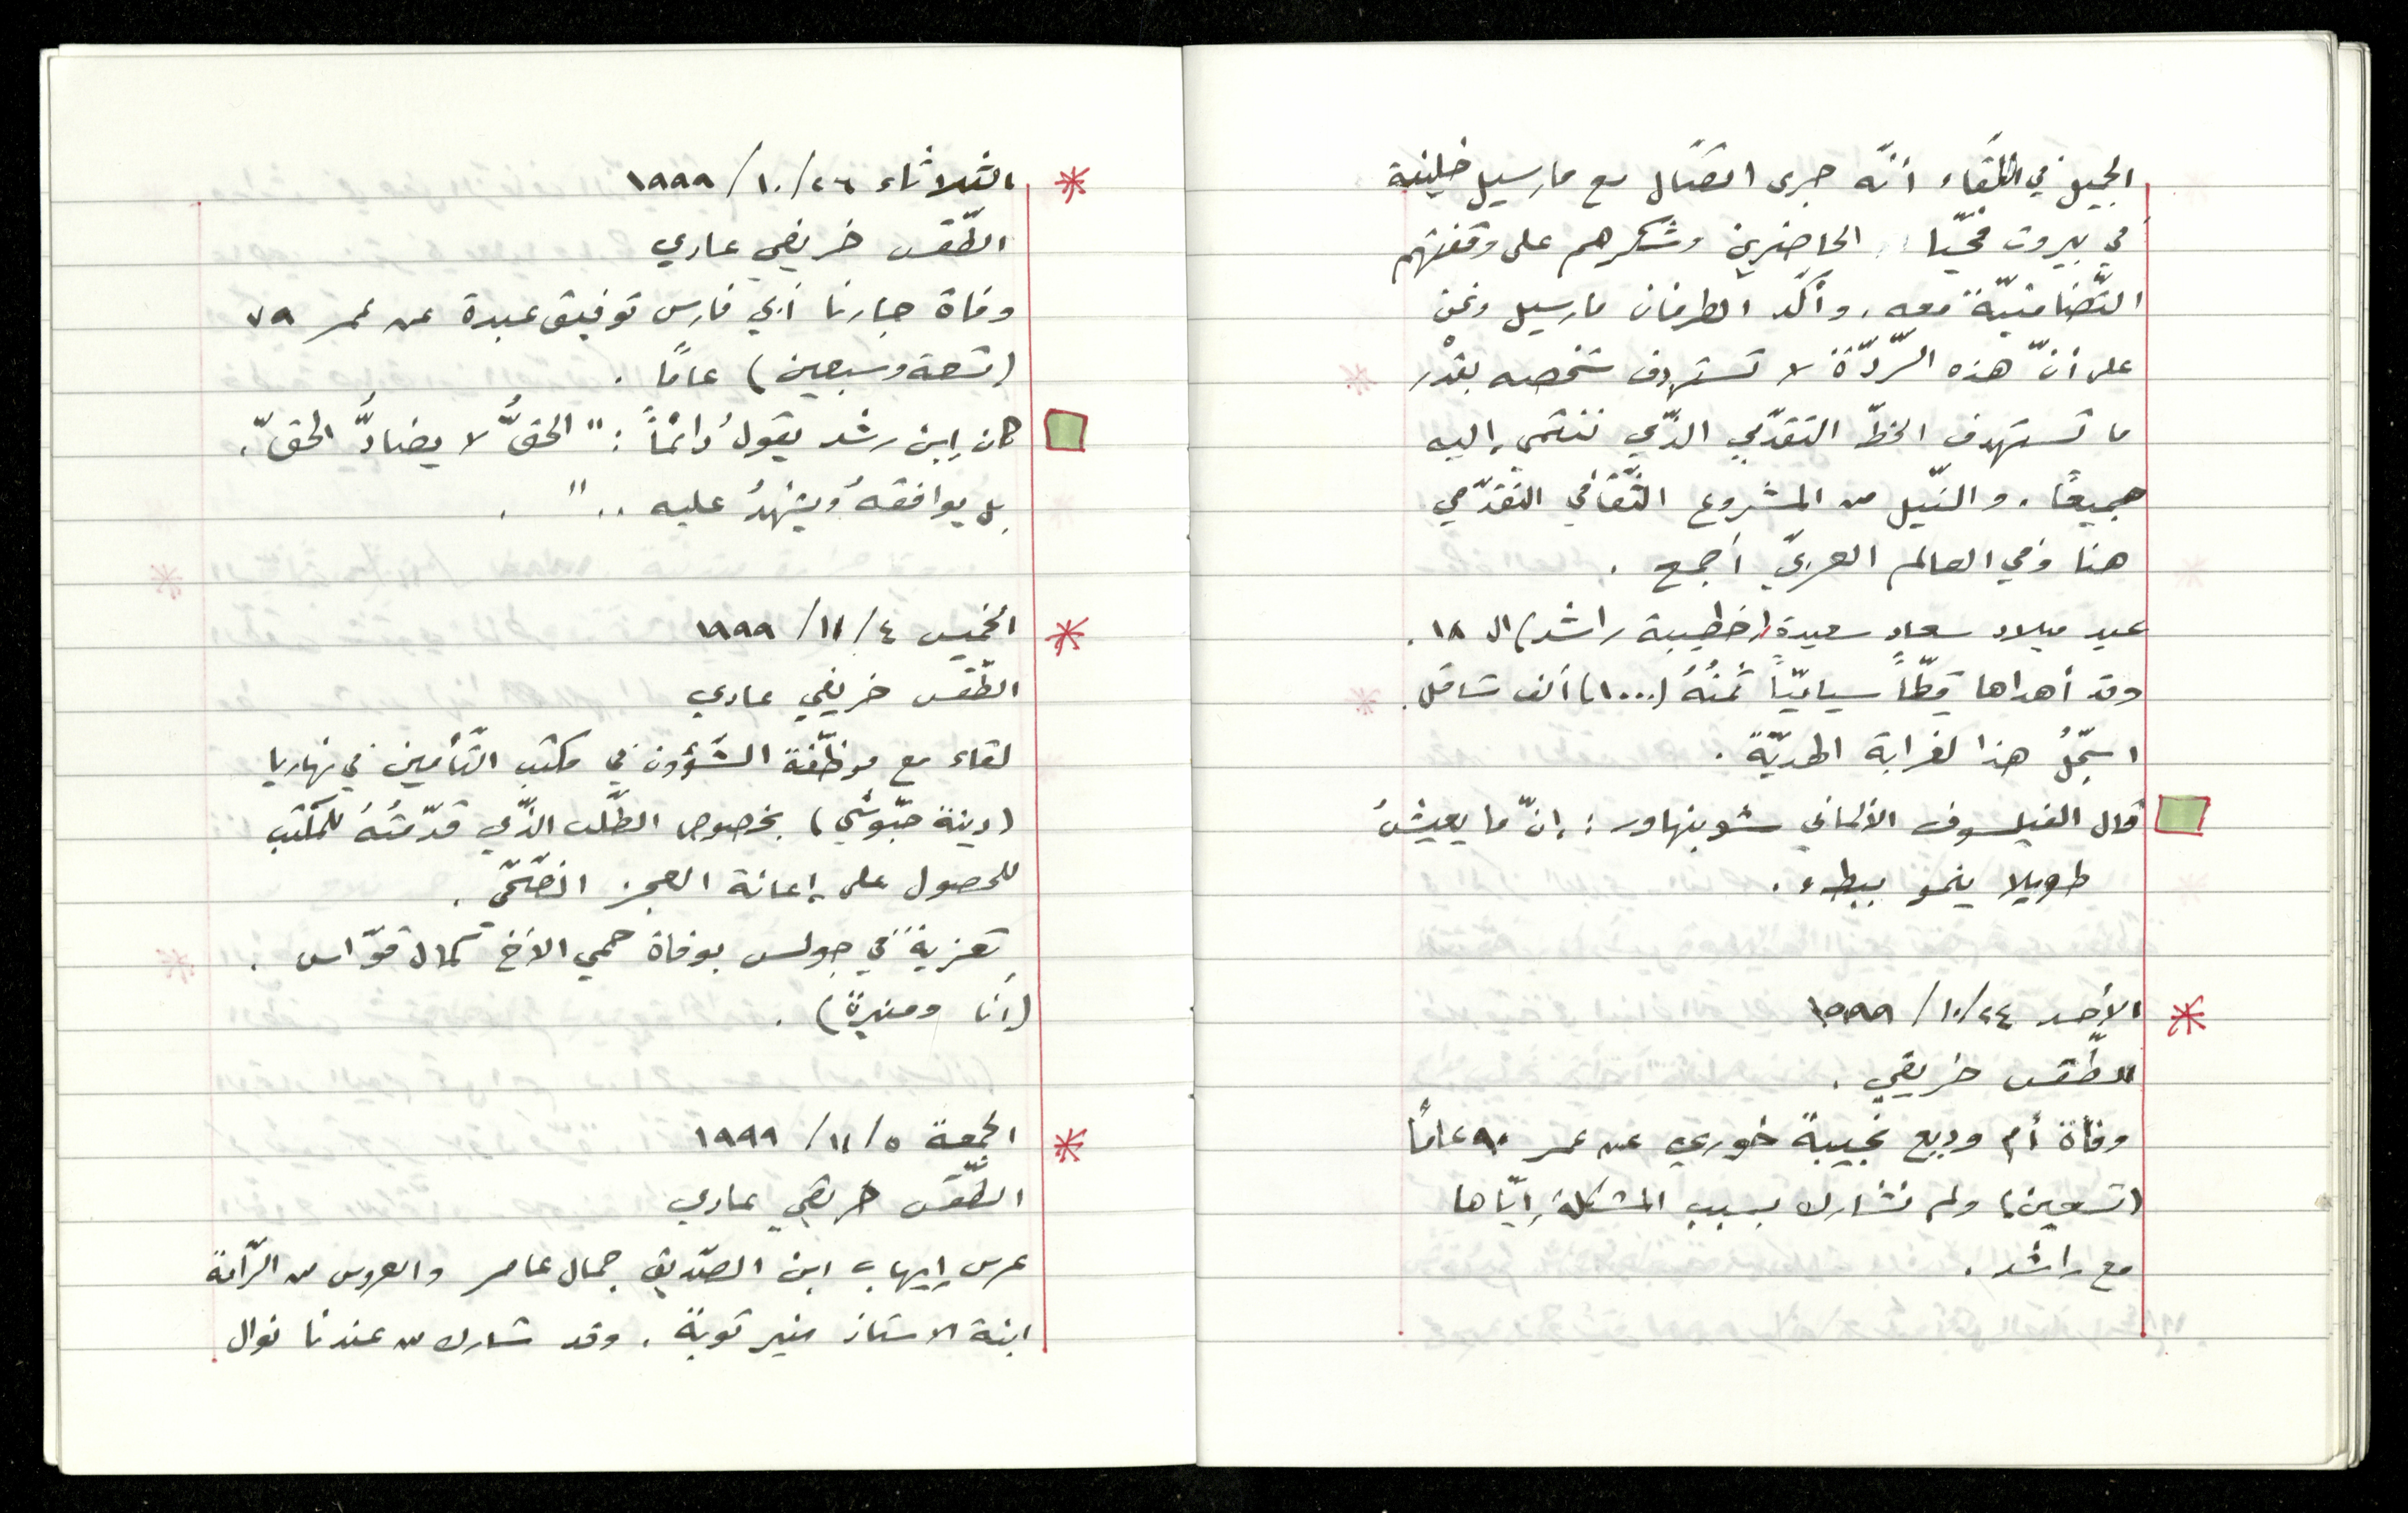 الجميل في اللّقاء أنّه جرى اتّصال مع مارسيل خليفة
في بيروت فحيّا الحاضرين وشكرهم على وقفتهم
التّضامنيّة معه. وأكّد الطرفان مارسيل ونحن
على أنّ هذه الرّدّة لا تستهدف شخصه بقدْر
ما تستهدف الخطّ التقدّمي الذّي ننتمي إليه
جميعًا. والنّيل من المشروع الثّقافي التقدّمي
هنا وفي العالم العربيّ أجمع.
عيد ميلاد سعاد سعيدة (خطيبة راشد) ال ١٨.
وقد أهداها قِطّاً سياميّاً ثمنُهُ (١٠٠٠) ألف شاقل.
اسجّلُ هذا لغرابة الهديّة.
قال الفيلسوف الألماني شوبنهاور: إنّ ما يعيشُ
طويلا ينمو ببطء.
* الأحد ٢٤/١٠/١٩٩٩
الطّقس خريفي.
وفاة أم وديع نجيبة خوري عن عمر ٩٠ عامًا
(تسعين) ولم نشارك بسبب المشكلة إيّاها
مع راشد.
* الثلاثاء ٢٦/١٠/١٩٩٩
الطّقس خريفي عادي
وفاة جارنا أبي فارس توفيق عبدة عن عمر ٧٩
(تسعة وسبعين) عامًا.
كان إبن رشد يقولُ دائمًا: "الحقُّ لا يضادُّ الحقّ،
بل يوافقهُ ويشهدُ عليه .." .
* الخميس ٤/١١/١٩٩٩
الطّقس خريفي عادي
لقاء مع موظّفة الشّؤون في مكتب التّأمين في نهاريا
(دينة حبّوشي) بخصوص الطّلب الذّي قدّمتُهُ للمكتب
للحصول على إعانة العجز الصّحّي.
تعزية في جولس بوفاة حمي الأخ كمال قوّاس.
(أنا ومنيرة).
* الجمعة ٥/١١/١٩٩٩
الطّقس خريفي عادي
عرس إيهاب ابن الصّديق جمال عامر والعروس من الرّامة
ابنة الاستاذ منير توبة. وقد شارك من عندنا نوال